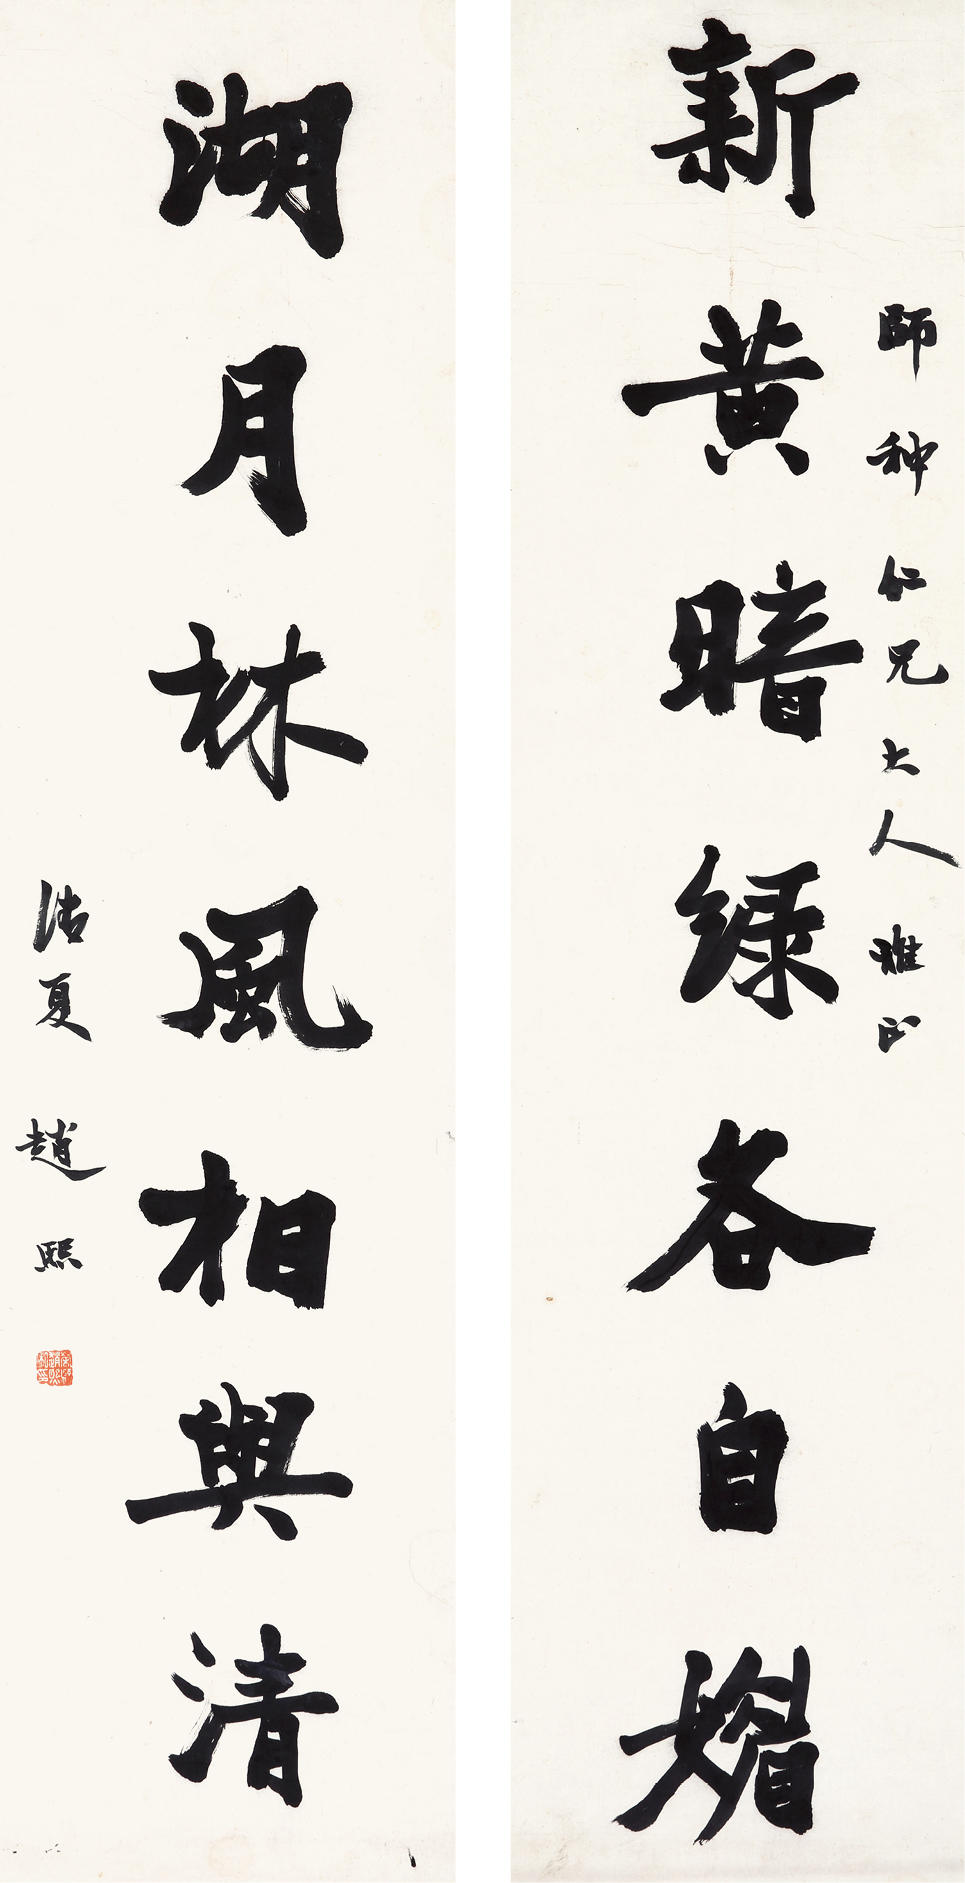 師种仁兄大人雅正
新黃暗綠各自媚
湖月林風相與清
浩夏趙熙